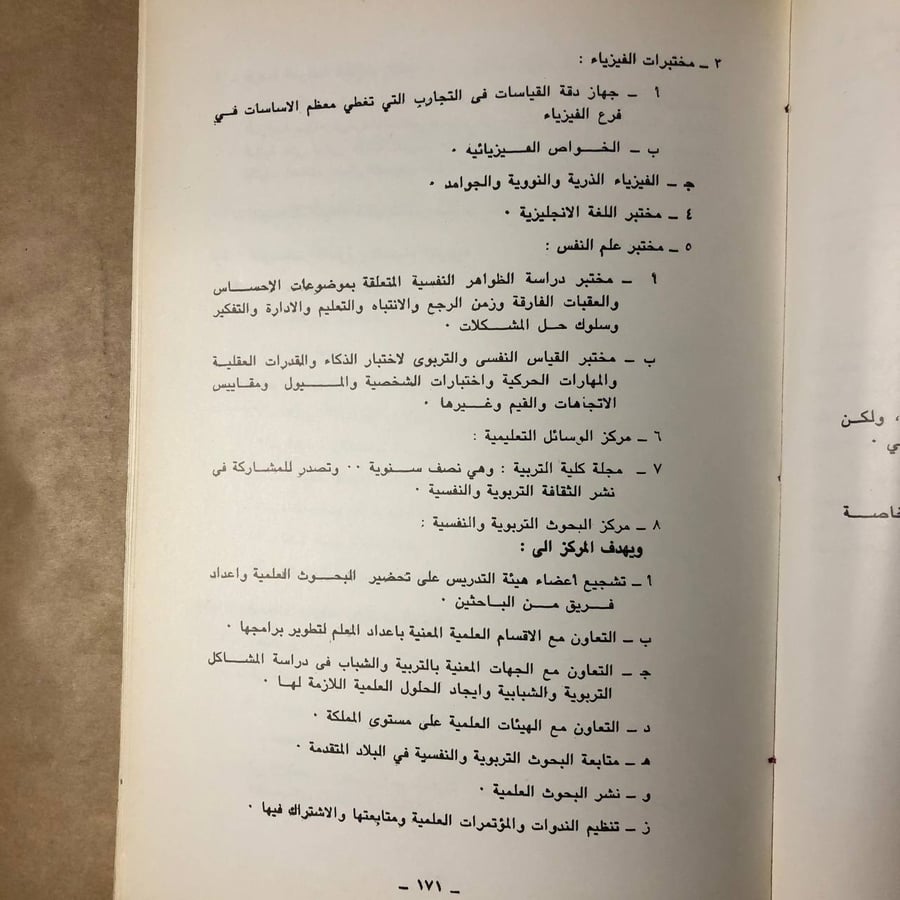 ٣ ـ مختبرات الفيزياء :
أ ـ جهاز دقة القياسات فى التجارب التي تغطي معظم الاساسات فـي
فرع الفيزياء
ب ـ الخـواص الفـيزيائية ٠
جـ ـ الفيزياء الذرية والنووية والجوامد ٠
٤ ـ مختبر اللغة الانجليزية ٠
٥ ـ مختبر علم النفس :
أ ـ مختبر دراسة الظواهر النفسية المتعلقة بموضوعات الإحسـاس
والعقبات الفارقة وزمن الرجع والانتباه والتعليم والادارة والتفكير
وسلوك حـل المشـكلات ٠
ب ـ مختبر القياس النفسى والتربوى لاختبار الذكاء والقدرات العقلية
والمهارات الحركية واختبارات الشخصية والميـول ومقـاييس
الاتجاهات والقيم وغـيرها ٠
٦ ـ مركز الوسائل التعليمية :
٧ ـ مجلة كلية التربية : وهي نصف سـنوية ٠٠ وتصدر للمشاركة في
نشر الثقافة التربوية والنفسية ٠
٨ ـ مركز البحوث التربوية والنفسية :
ويهدف المركز الى :
أ ـ تشجيع أعضاء هيئة التدريس على تحضير البحـوث العلمية واعداد
فـريق مـن البـاحثين ٠
ب ـ التعاون مع الاقسام العلمية المعنية باعداد المعلم لتطوير برامجها ٠
جـ ـ التعاون مع الجهات المعنية بالتربية والشباب فى دراسة المشـاكل
التربوية والشبابية وايجاد الحلول العلمية اللازمة لهـا ٠
د ـ التعاون مع الهيئات العلمية على مستوى المملكة ٠
هـ ـ متابعة البحوث التربوية والنفسية في البلاد المتقدمة ٠
و ـ نشر البحوث العلمية ٠
ز ـ تنظيم الندوات والمؤتمرات العلمية ومتابعتها والاشتراك فيها ٠
ـ ١٧١ ـ
، ولكـن